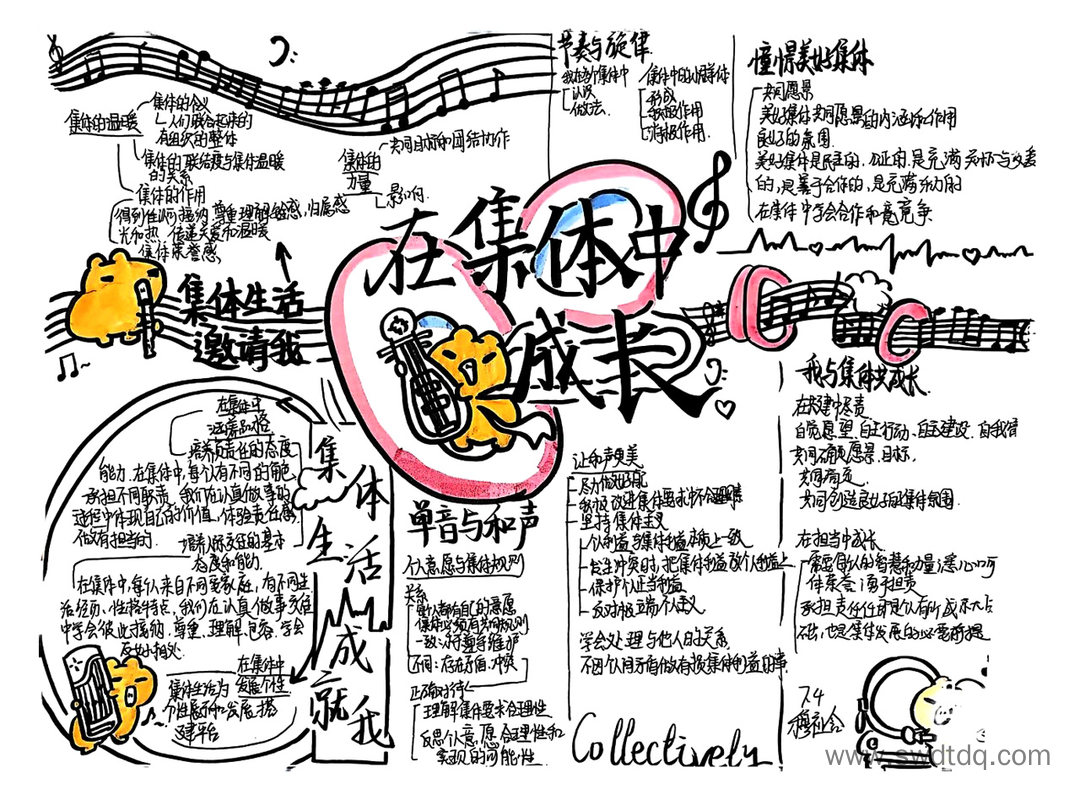 在集体中
成长
集体生活
邀请我
集体的温暖
集体的含义
人们联合起来的
有组织的整体
集体的联结度与集体温暖
的关系
集体的作用
得到认可接纳,尊重理解
归属感
光和热 传递关爱和温暖
集体荣誉感
集体的
力量
共同目标和团结协作
影响
节奏与旋律
我在多个集体中
认识
做法
集体中的小群体
形成
积极作用
消极作用
憧憬美好集体
共同愿景
美好集体共同愿景的内涵和作用
良好的氛围
美好集体是民主的、公正的,是充满关怀与友善
的,是善于合作的,是充满活力的
在集体中学会合作和竞争
集体生活成就我
在集体中
涵养品格
培养负责任的态度
能力。在集体中,每个人有不同的角色,
承担不同职责,我们在认真做事的
过程中体现自己的价值,体验责任感,
做有担当的
培养人际交往的基本
态度和能力
在集体中,每个人来自不同家庭,有不同生
活经历、性格特点,我们在认真做事交往
中学会彼此接纳、尊重、理解、包容,学会
友好相处
在集体中
发展个性
集体生活为
个性展示和发展,搭
建平台
单音与和声
个人意愿与集体规则
关系
每个人都有自己的意愿
集体必须有共同规则
一致:得到尊重维护
不同:存在矛盾、冲突
正确对待
理解集体要求合理性
反思个人意愿合理性和
实现的可能性
让和声更美
尽力做好自己
坚持集体主义
个人利益与集体利益本质上一致
发生冲突时,把集体利益放个人利益上
保护个人正当利益
反对极端个人主义
学会处理与他人的关系
不因个人矛盾做有损集体利益的事
Collectively
我与集体共成长
在共建中尽责
自觉愿望、自主行动、自主建设、自我管
共同确定愿景、目标
共同商定
共同创造良好的集体氛围
在担当中成长
需要每个人的智慧和力量,悉心呵护
集体荣誉、勇于担责
7.4
穆社会
www.swdtdq.com